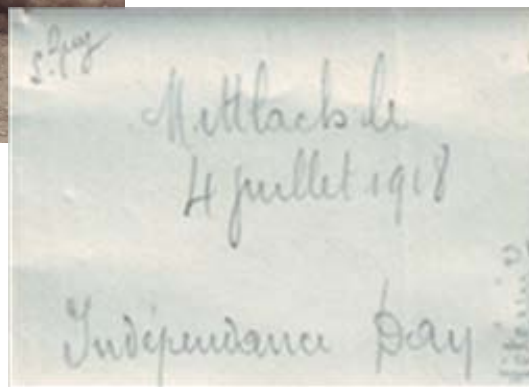 Mettlach le
4 juillet 1918
Indépendance Day